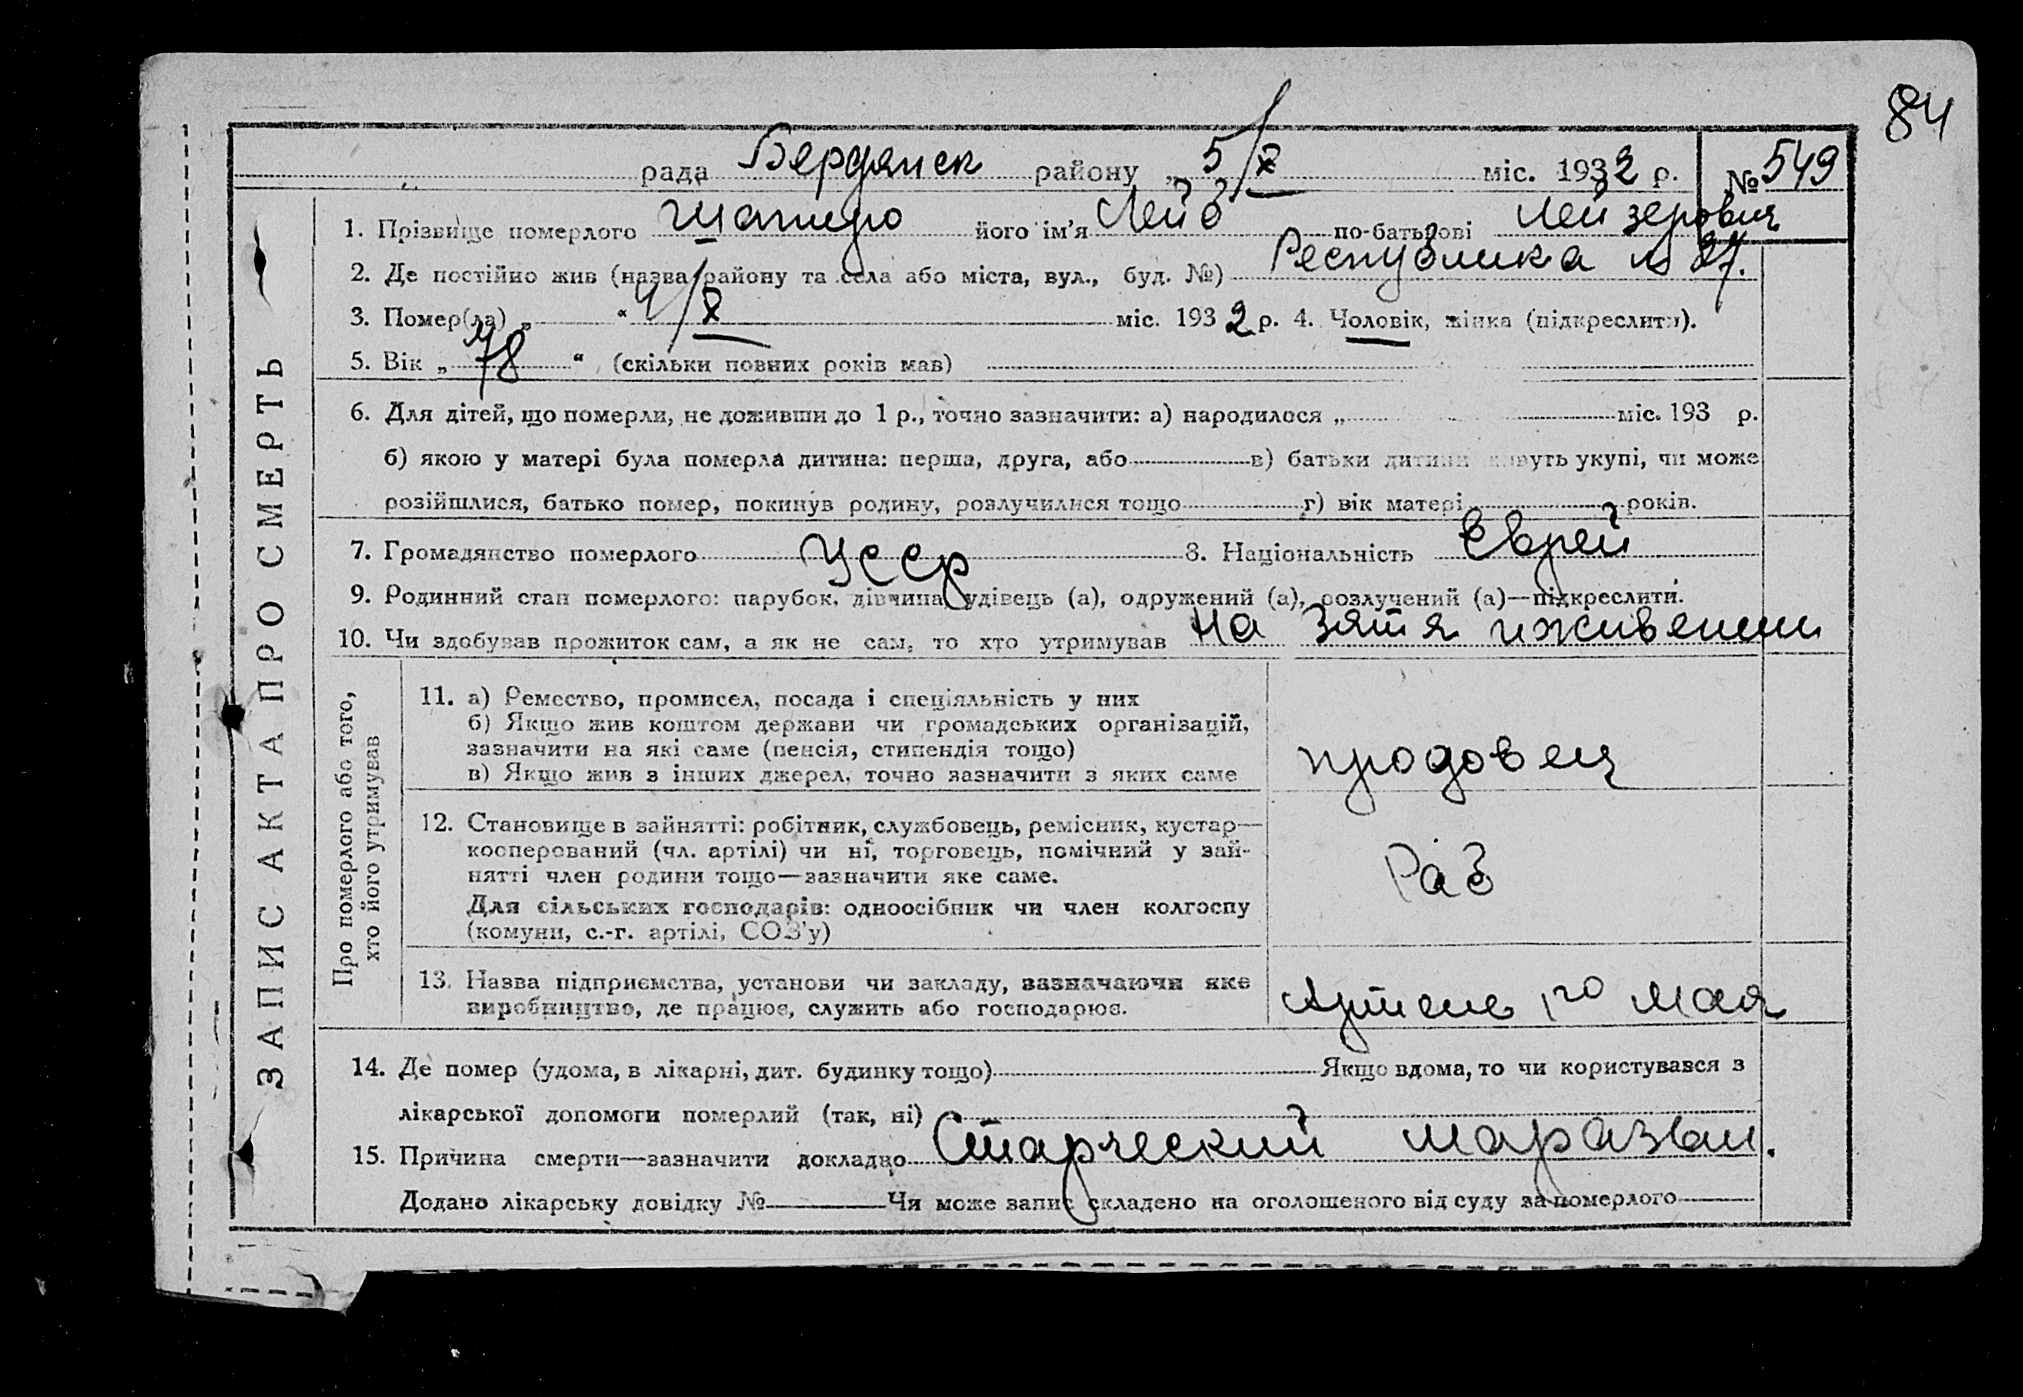 84
рада Бердянск району „ 5/X міс. 1932 р. № 549
1. Прізвище померлого Шапиро його ім'я Лейб по-батькові Лейзерович
2. Де постійно жив (назва району та села або міста, вул., буд. №) Республика № 27.
3. Помер(ла) „ “ 4/X міс. 1932 р. 4. Чоловік, жінка (підкреслити).
5. Вік „ 78 “ (скільки повних років мав)
6. Для дітей, що померли, не доживши до 1 р., точно зазначити: а) народилося „ міс. 193 р.
б) якою у матері була померла дитина: перша, друга, або в) батьки дитини живуть укупі, чи може
розійшлися, батько помер, покинув родину, розлучилися тощо г) вік матері років.
7. Громадянство померлого УССР 8. Національність Еврей
9. Родинний стан померлого: парубок, дівчина, удівець (а), одружений (а), розлучений (а)—підкреслити.
10. Чи здобував прожиток сам, а як не сам, то хто утримував на зятя иживении
ЗАПИС АКТА ПРО СМЕРТЬ
Про померлого або того,
хто його утримував
11. а) Ремество, промисел, посада і спеціяльність у них
б) Якщо жив коштом держави чи громадських організацій,
зазначити на які саме (пенсія, стипендія тощо)
в) Якщо жив з інших джерел, точно зазначити з яких саме
продовец
12. Становище в зайнятті: робітник, службовець, ремісник, кустар—
кооперований (чл. артілі) чи ні, торговець, помічний у зай-
нятті член родини тощо—зазначити яке саме.
Для сільських господарів: одноосібник чи член колгоспу
(комуни, с.-г. артілі, СОЗ'у)
Раб
13. Назва підприємства, установи чи закладу, зазначаючи яке
виробництво, де працює, служить або господарює.
Артель 1го мая
14. Де помер (удома, в лікарні, дит. будинку тощо) Якщо вдома, то чи користувався з
лікарської допомоги померлий (так, ні)
15. Причина смерти—зазначити докладно Старческий маразвм.
Додано лікарську довідку № Чи може запис складено на оголошеного від суду за померлого